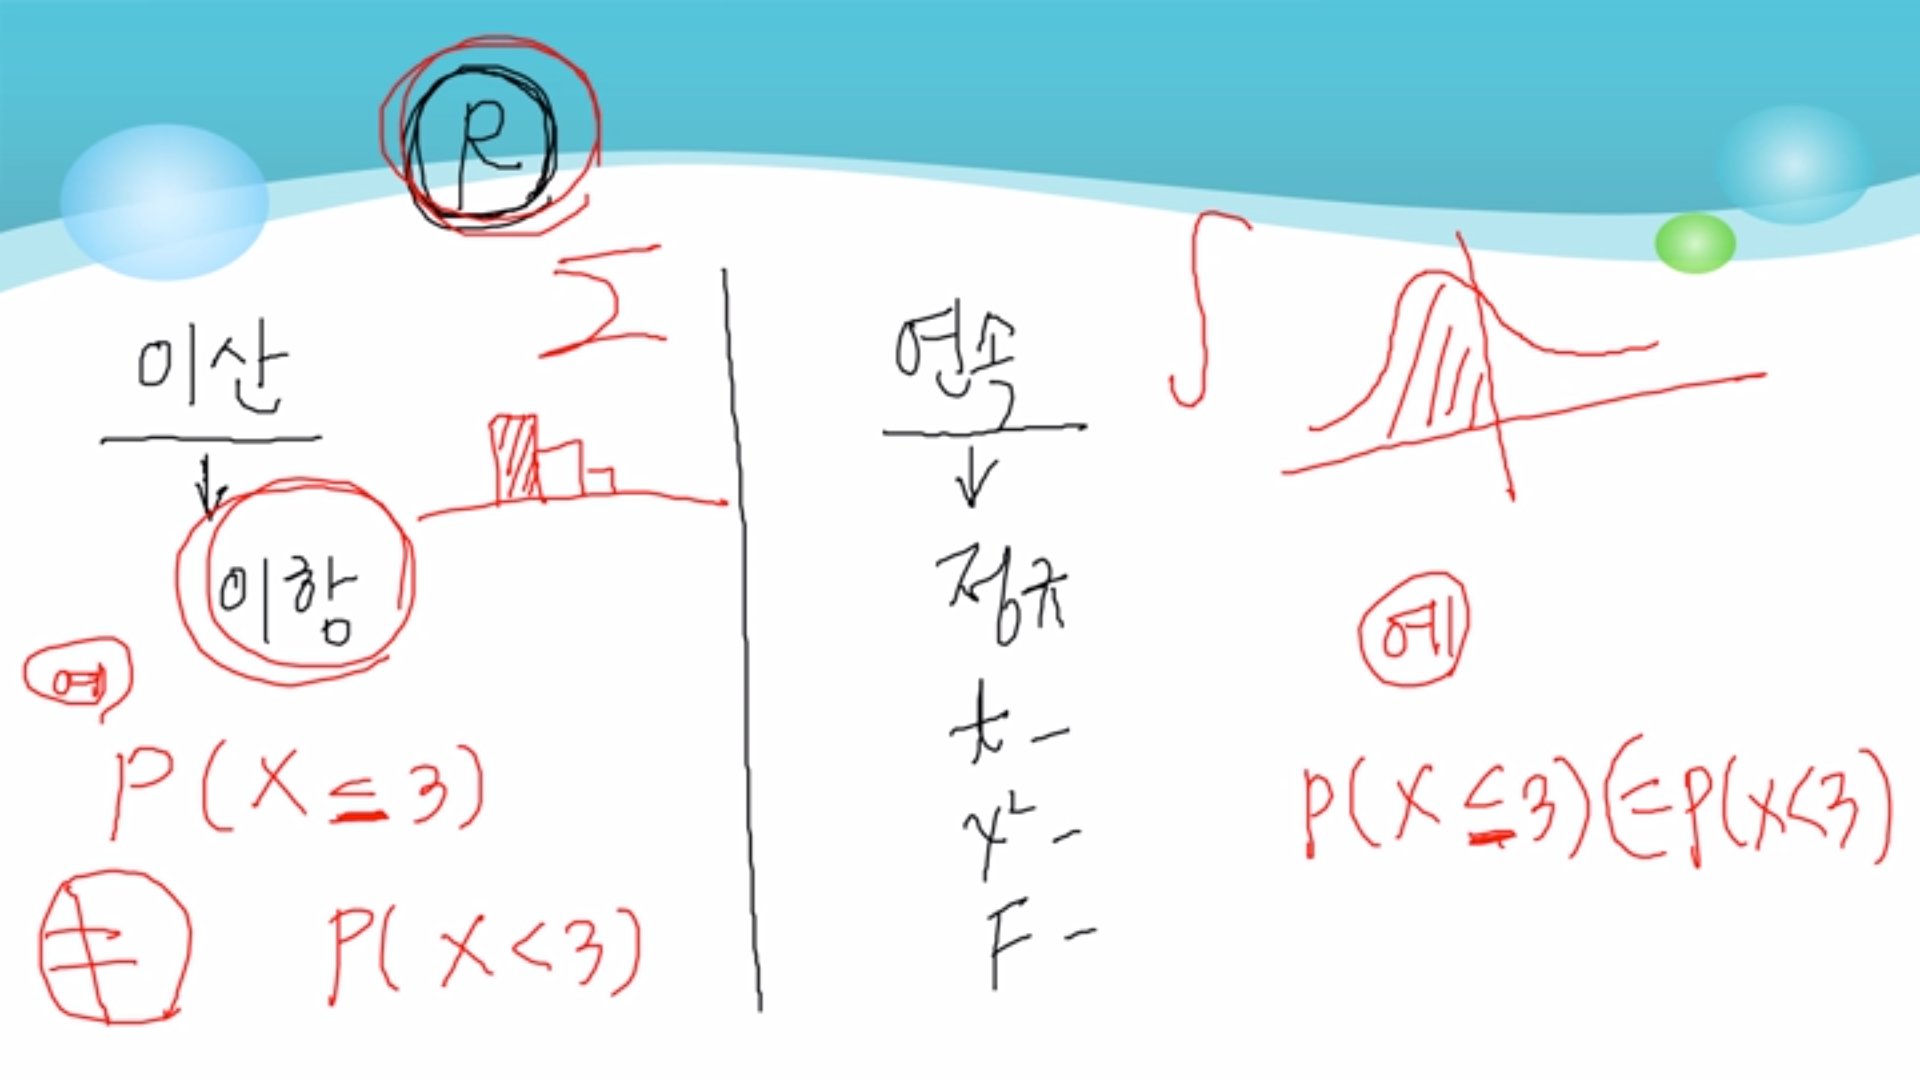 R
이산
Σ
이항
예
P(X ≤ 3)
≠ P(X<3)
연속
∫
정규
t-
χ²-
F-
예
P(X ≤ 3) (=P(X<3)